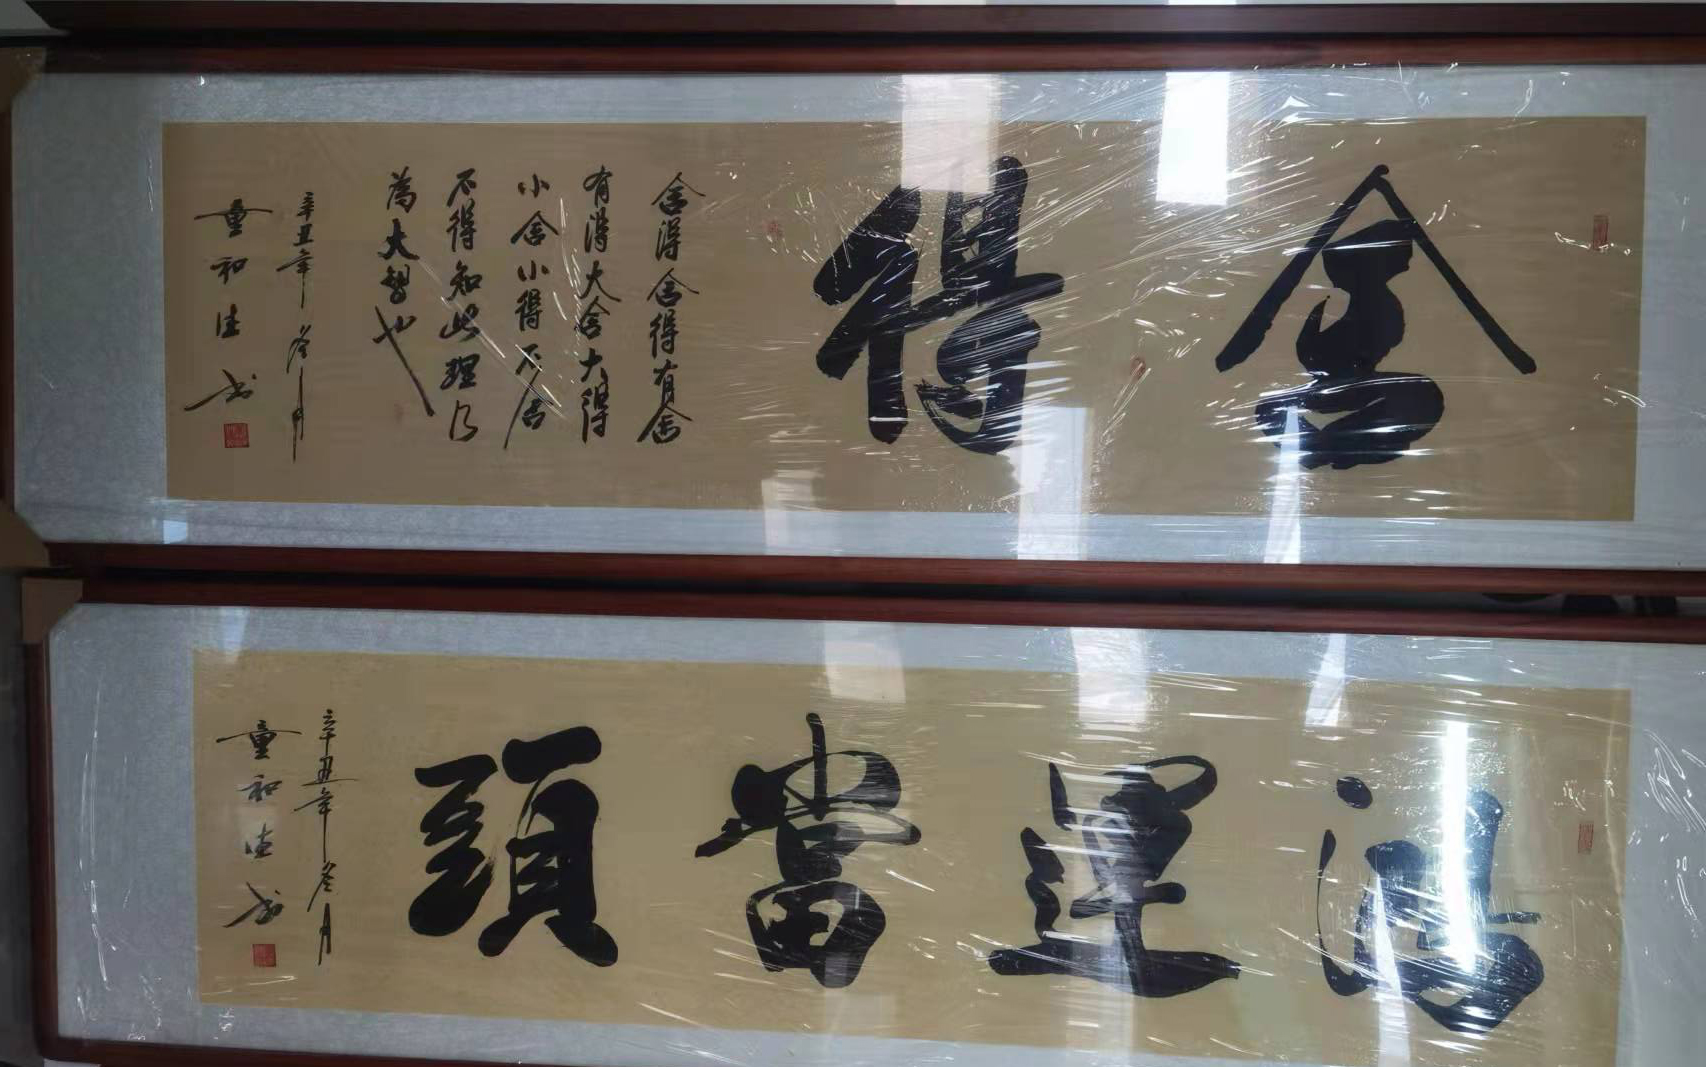 舍得
舍得舍得有舍
有得大舍大得
小舍小得不舍
不得知此理乃
為大智也
辛丑年冬月
童和佳书
鴻運當頭
辛丑年冬月
童和佳书